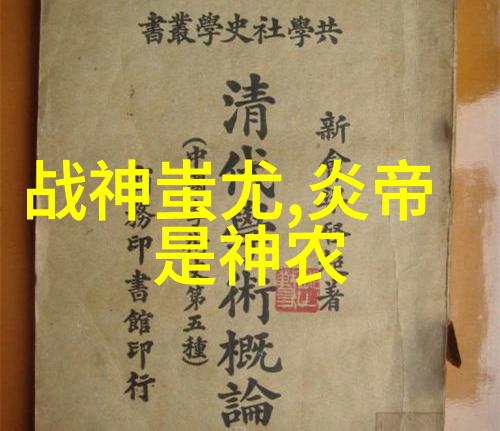 共學社史學叢書
清代學術概論
新會梁啓超著
務印書館印行
第五種)
战神蚩尤,炎帝
是神农